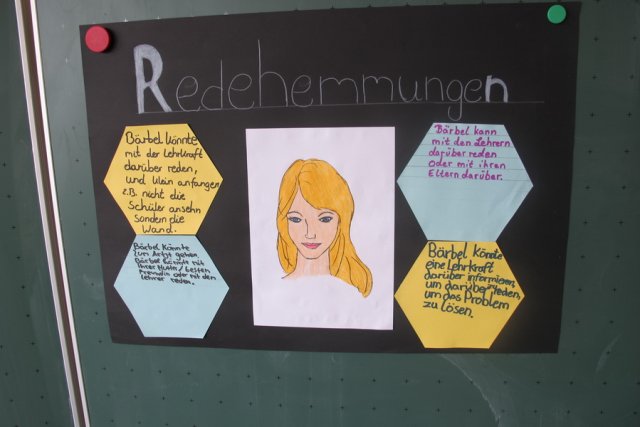 Redehemmungen
Bärbel könnte
mit der Lehrkraft
darüber reden,
und klein anfangen
z.B. nicht die
Schüler ansehn
sondern die
Wand.
Bärbel könnte
zum Artzt gehen.
Bärbel könnte mit
ihrer Mutter/besten
Freundin oder mit dem
Lehrer reden.
Bärbel kann
mit den Lehrern
darüber reden
oder mit ihren
Eltern darüber.
Bärbel könnte
eine Lehrkraft
darüber informieren,
um darüber reden,
um das Problem
zu lösen.